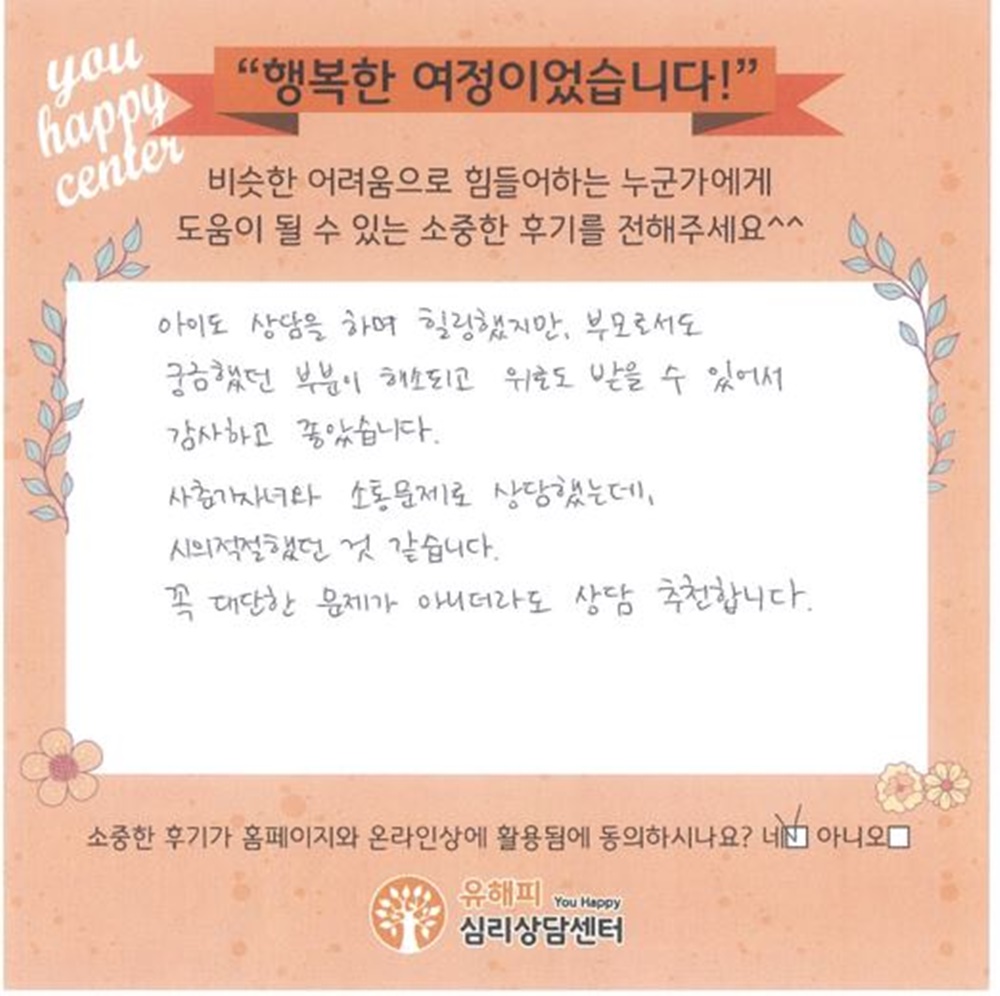 you
happy
center
“행복한 여정이었습니다!”
비슷한 어려움으로 힘들어하는 누군가에게
도움이 될 수 있는 소중한 후기를 전해주세요^^
아이도 상담을 하며 힐링했지만, 부모로서도
궁금했던 부분이 해소되고 위로도 받을 수 있어서
감사하고 좋았습니다.
사춘기자녀와 소통문제로 상담했는데,
시의적절했던 것 같습니다.
꼭 대단한 문제가 아니더라도 상담 추천합니다.
소중한 후기가 홈페이지와 온라인상에 활용됨에 동의하시나요? 네☑ 아니오☐
유해피 You Happy
심리상담센터